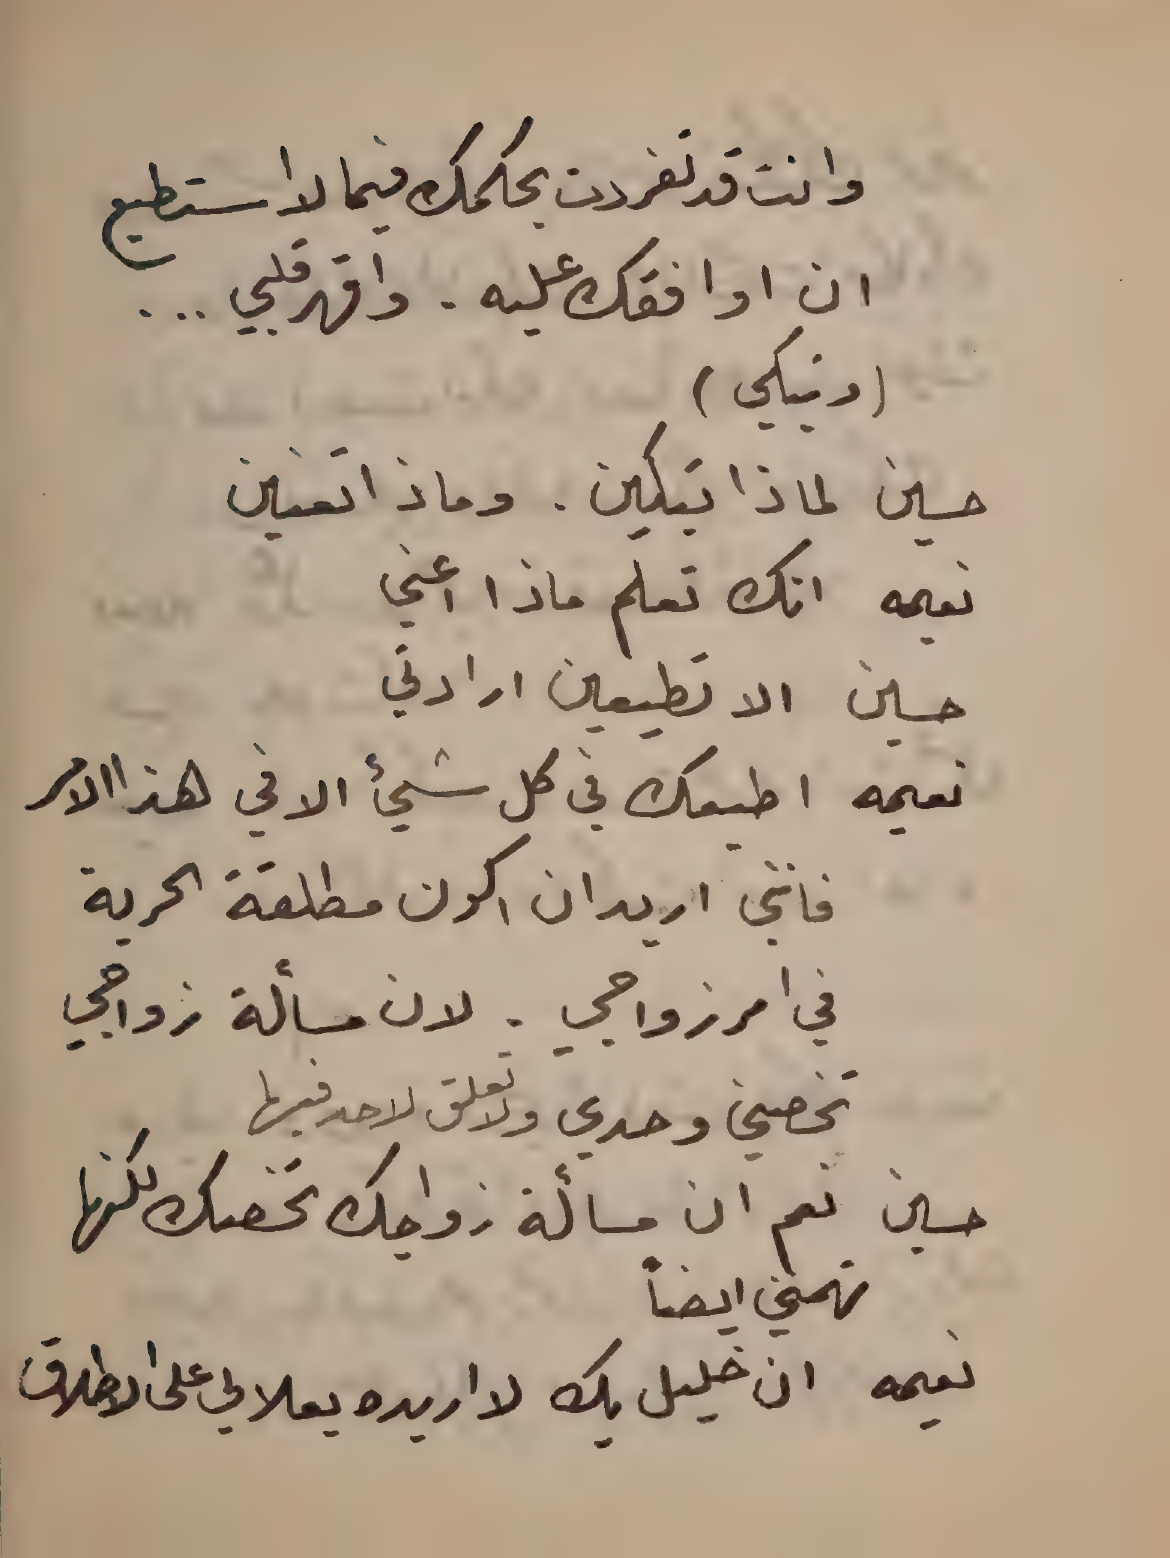 وانت قد تفردت بحكمك فيما لا استطيع
ان اوافقك عليه . واقهر قلبي ...
(وتبكي)
حسين لماذا تبكين . وماذا تعنين
نعيمه انك تعلم ماذا اعني
حسين الا تطيعين ارادتي
نعيمه اطيعك في كل شيئ الا في هذا الامر
فانني اريد ان اكون مطلقة الحرية
في امر زواجي . لان مسألة زواجي
تخصني وحدي ولا تعلق لاحد فيها
حسين نعم ان مسألة زواجك تخصك لكنها
تهمني ايضاً
نعيمه ان خليل بك لا اريده بعلا لي على الاطلاق